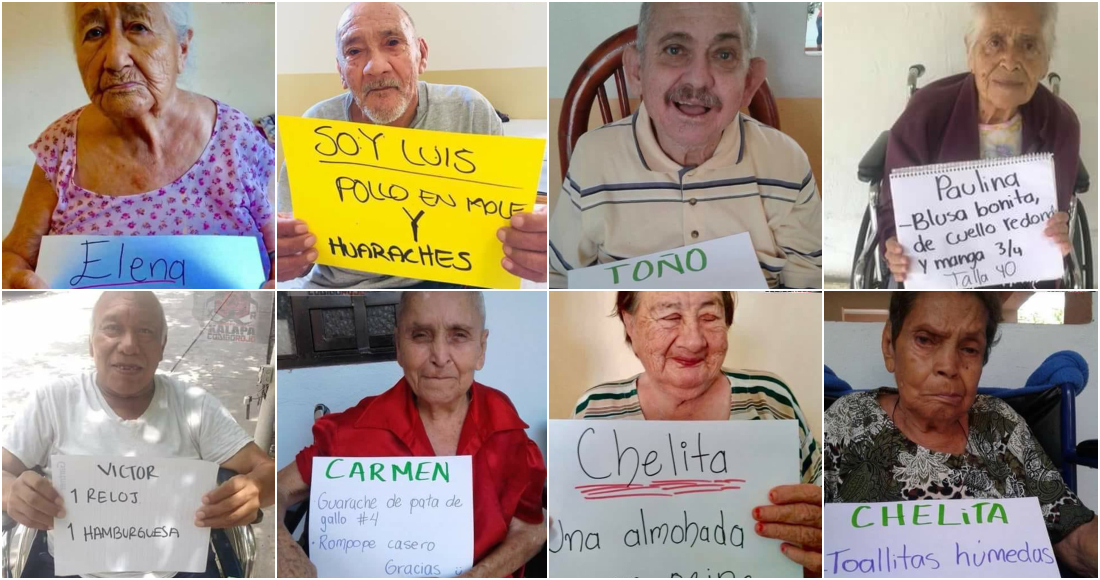 Elena
SOY LUIS
POLLO EN MOLE
Y
HUARACHES
TOÑO
Paulina
-Blusa bonita,
de cuello redondo
y manga 3/4
Talla 40
XALAPA
VICTOR
1 RELOJ
1 HAMBURGUESA
CARMEN
Guarache de pata de
gallo #4
-Rompope casero
Gracias ü
Chelita
Una almohada
CHELITA
-Toallitas húmedas